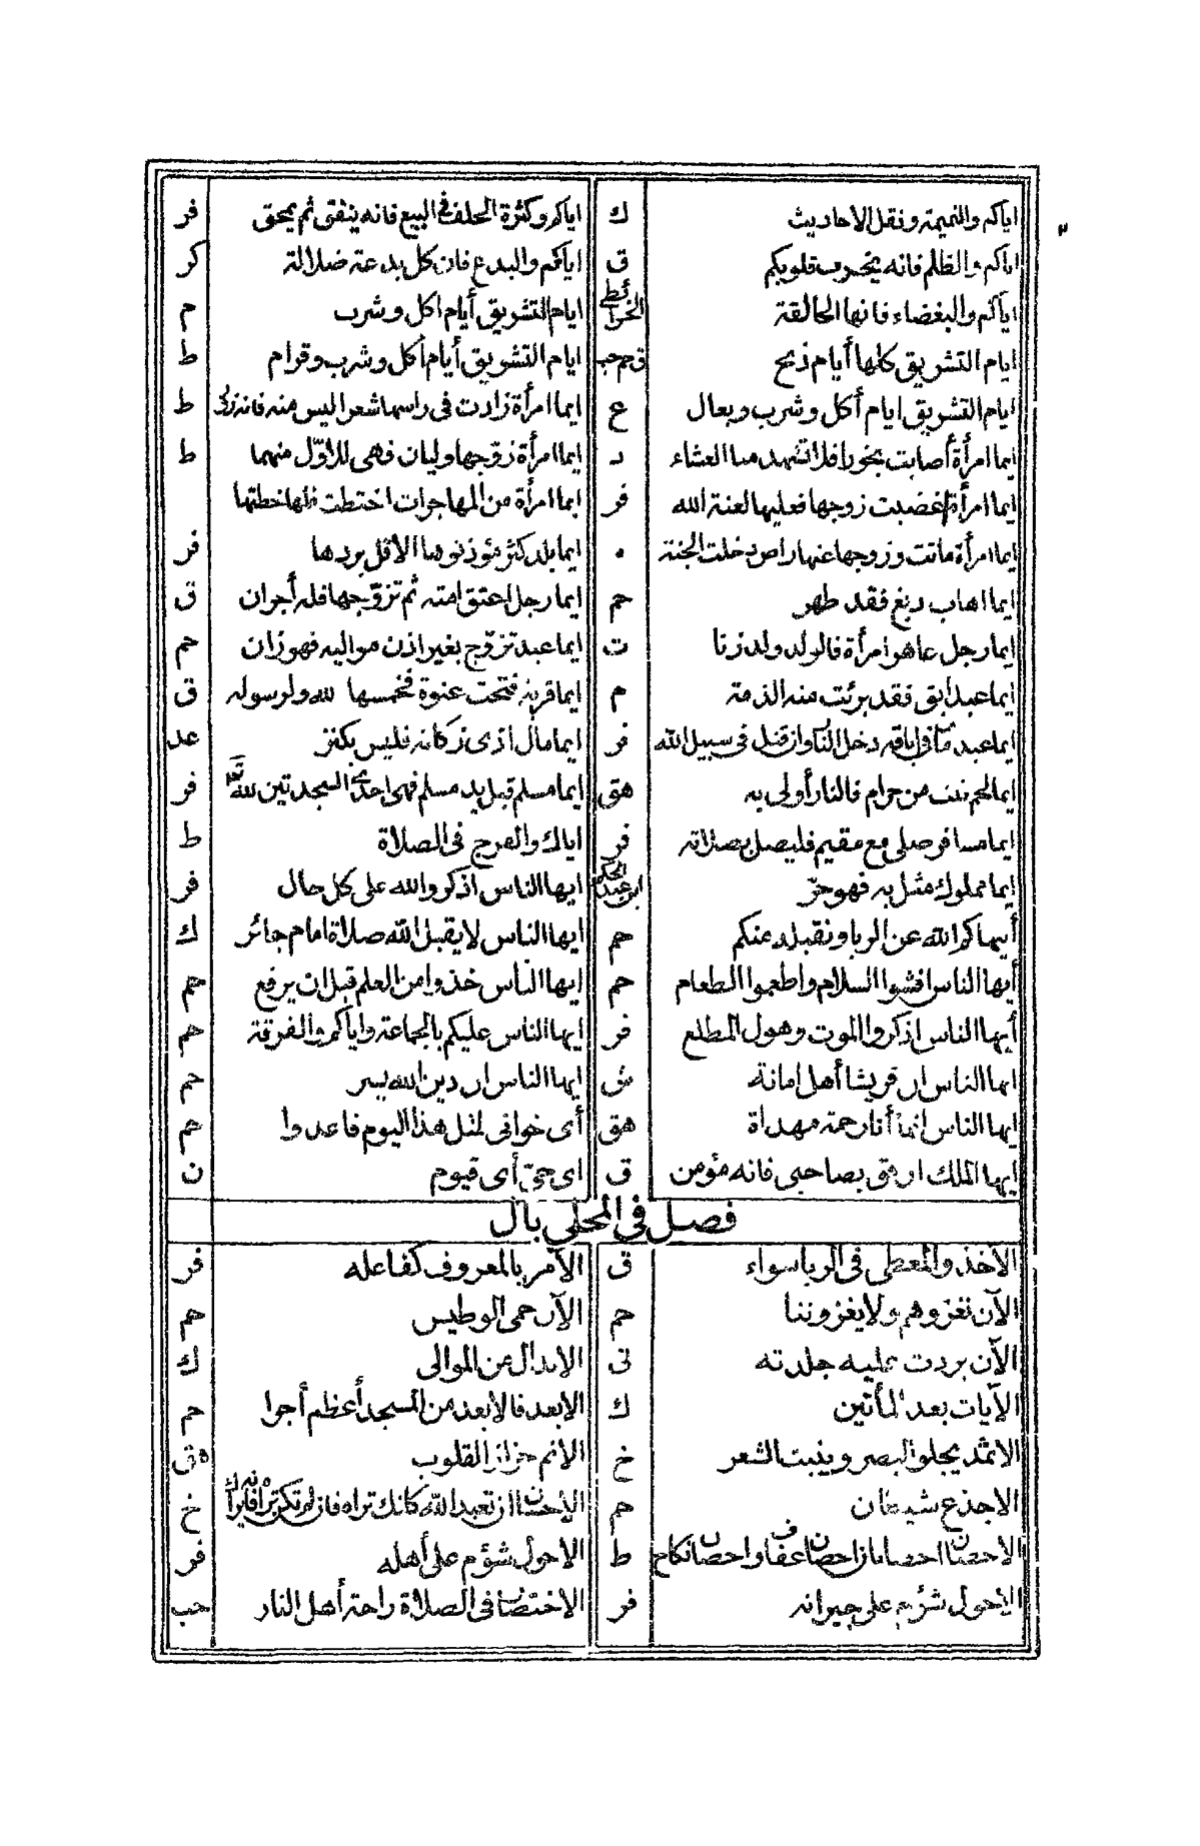 ٢
اياكم والنميمة ونقل الاحاديث ك
اياكم وكثرة الحلف في البيع فانه ينفق ثم يمحق فر
اياكم والظلم فانه يخرب قلوبكم ق
اياكم والبدع فان كل بدعة ضلالة كر
اياكم والبغضاء فانها الحالقة الخرائطي
ايام التشريق أيام اكل وشرب م
ايام التشريق كلها أيام ذبح
ايام التشريق أيام أكل وشرب وقرام ط
ايام التشريق ايام أكل وشرب وبعال ع
ايما امرأة زادت في راسها شعرا ليس منه فانه ط
ايما امرأة أصابت بخورا فلا تشهد معنا العشاء د
ايما امرأة زوّجها وليان فهي للاوّل منهما ط
ايما امرأة اغضبت زوجها فعليها لعنة الله فر
ايما امرأة من المهاجرات اختطت فلها خطتها
ايما امرأة ماتت وزوجها عنها راض دخلت الجنة ه
ايما بلد كثر مؤذنوها الا قل بردها فر
ايما اهاب دبغ فقد طهر حم
ايما رجل اعتق امته ثم تزوّجها فله أجران ق
ايما رجل عاهر امرأة فالولد ولد زنا ت
ايما عبد تزوّج بغير اذن مواليه فهو زان حم
ايما عبد ابق فقد برئت منه الذمة م
ايما قرية فتحت عنوة فخمسها لله ولرسوله ق
ايما عبد مات في اباقه دخل النار وان قتل في سبيل الله فر
ايما مال ادى زكاته فليس بكنز عد
ايما لحم نبت من حرام فالنار أولى به هق
ايما مسلم قبل يد مسلم فهي احدى السجدتين لله فر
ايما مسافر صلى مع مقيم فليصل بصلاته فر
اياك والفرج في الصلاة ط
ايما مملوك مثل به فهو حرّ ابن عبد الحكم
ايها الناس اذكروا الله على كل حال فر
أينهاكم الله عن الربا ونقبله منكم حم
ايها الناس لا يقبل الله صلاة امام جائر ك
أيها الناس افشوا السلام واطعموا الطعام حم
ايها الناس خذوا من العلم قبل ان يرفع حم
أيها الناس اذكروا الموت وهول المطلع فر
ايها الناس عليكم بالجماعة واياكم والفرقة حم
ايها الناس ان قريشا أهل امانة ش
ايها الناس ان دين الله يسر حم
ايها الناس انما أنا رحمة مهداة هق
أى خوانى لمثل هذا اليوم فاعدوا حم
ايها الملك ارفق بصاحبي فانه مؤمن ق
اى حيّ أى قيوم ن
فصل في المحلي بال
الآخذ والمعطي في الربا سواء ق
الآمر بالمعروف كفاعله فر
الآن نغزوهم ولا يغزوننا حم
الآن حمى الوطيس حم
الآن بردت عليه جلدته
الابدال من الموالى ك
الآيات بعد المأتين ك
الابعد فالابعد من المسجد أعظم أجرا م
الاثمد يجلو البصر وينبت الشعر خ
الاثم حزاز القلوب هق
الاجدع شيطان حم
الاحسان ان تعبد الله كانك تراه فان لم تكن تراه فانه يراك خ
الاحصان احصانان احصان عفاف واحصان نكاح ط
الاحول شؤم على أهله فر
الاحول شؤم على جيرانه فر
الاختصار في الصلاة راحة أهل النار حب